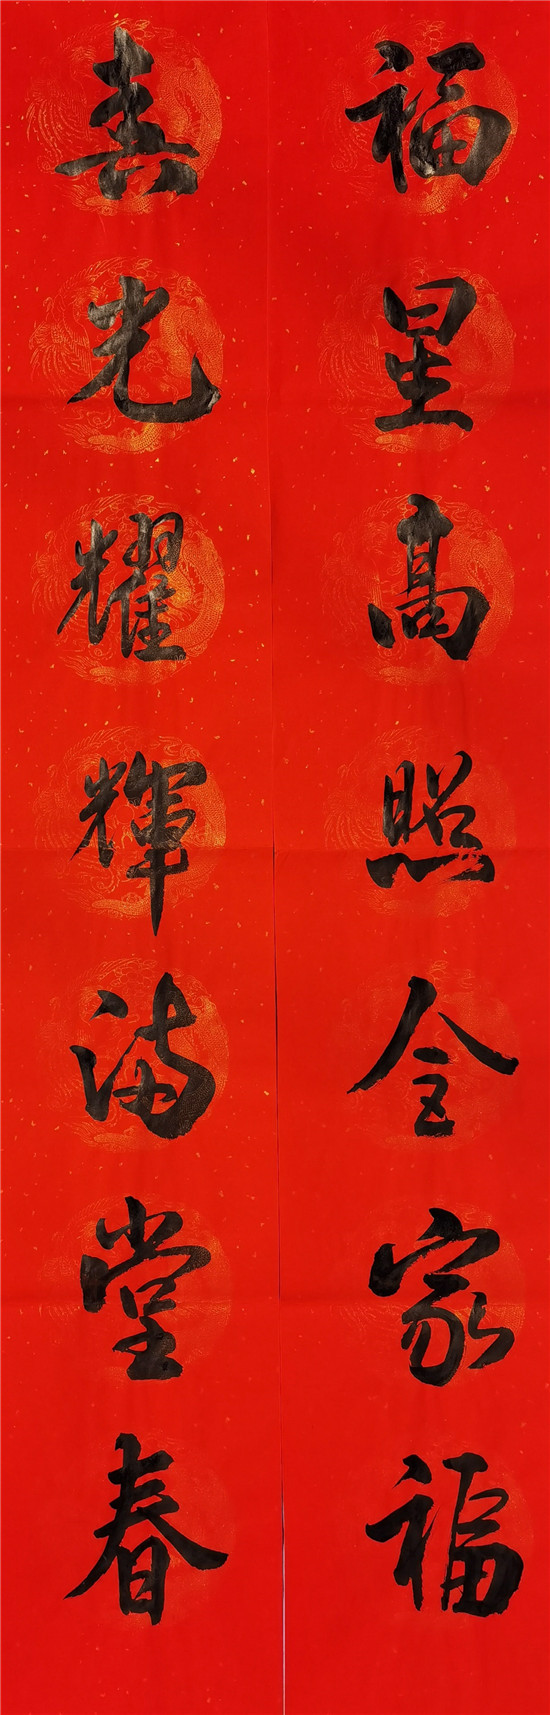 福星髙照全家福
春光耀輝滿堂春